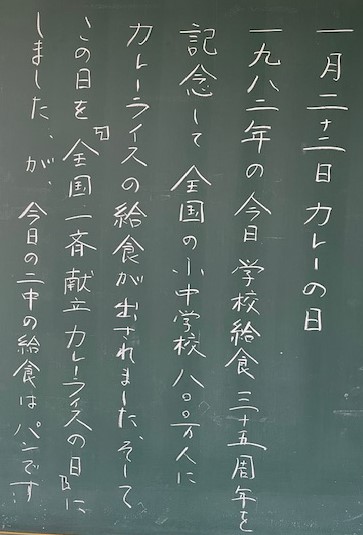 一月二十二日 カレーの日
一九八二年の今日 学校給食 三十五周年を
記念して 全国の小中学校 八〇〇万人に
カレーライスの給食が出されました、そして
この日を『全国一斉 献立 カレーライスの日』に
しました、が、今日の二中の給食は パンです